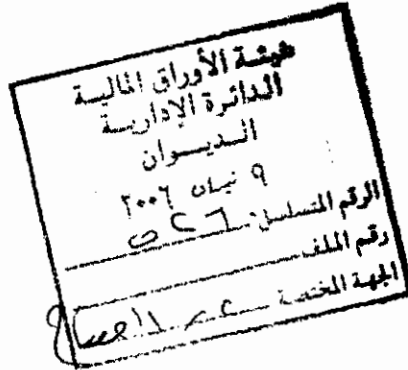 هيئة الأوراق المالية
الدائرة الإدارية
الديوان
٩ نيسان ٢٠٠٦
الرقم المتسلسل:
رقم الملف
الجهة المختصة